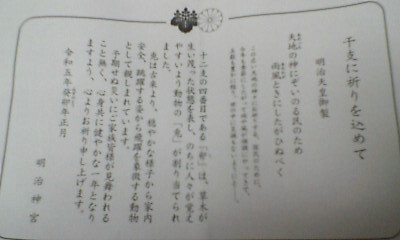 干支に祈りを込めて
明治天皇御製
天地の神にぞいのる民のため
雨風ときにしたがひぬべく
十二支の四番目である「卯」は、草木が
生い茂った状態を表し、のちに人々が覚え
やすいよう動物の「兎」が割り当てられ
ました。
兎は古来より、穏やかな様子から家内
安全、跳躍する姿から飛躍を象徴する動物
として親しまれています。
予期せぬ災いにご家族皆様が見舞われる
こと無く、心身共に健やかな一年となり
ますよう、心よりお祈り申し上げます。
令和五年癸卯年正月
明治神宮